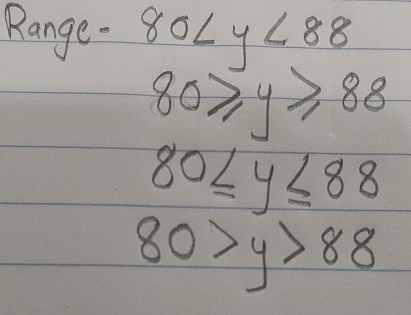 Range - 80 < y < 88
80 ⩾ y ⩾ 88
80 ≤ y ≤ 88
80 > y > 88